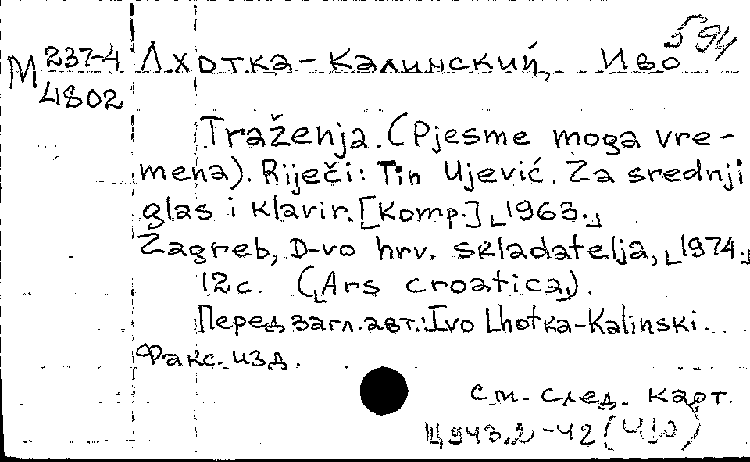 594
М 237-4
4802
Лхотка-Калинский, Иво
Traženja. (Pjesme moga vre-
mena). Riječi: Tin Ujević. Za srednji
glas i klavir. [Komp.] ⌊1963.⌋
Zagreb, D-vo hrv. skladatelja, ⌊1974.⌋
12 с. (⌊Ars croatica⌋).
Перед загл. авт.: Ivo Lhotka-Kalinski.
Факс. изд.
см. след. карт.
Щ943.2-42